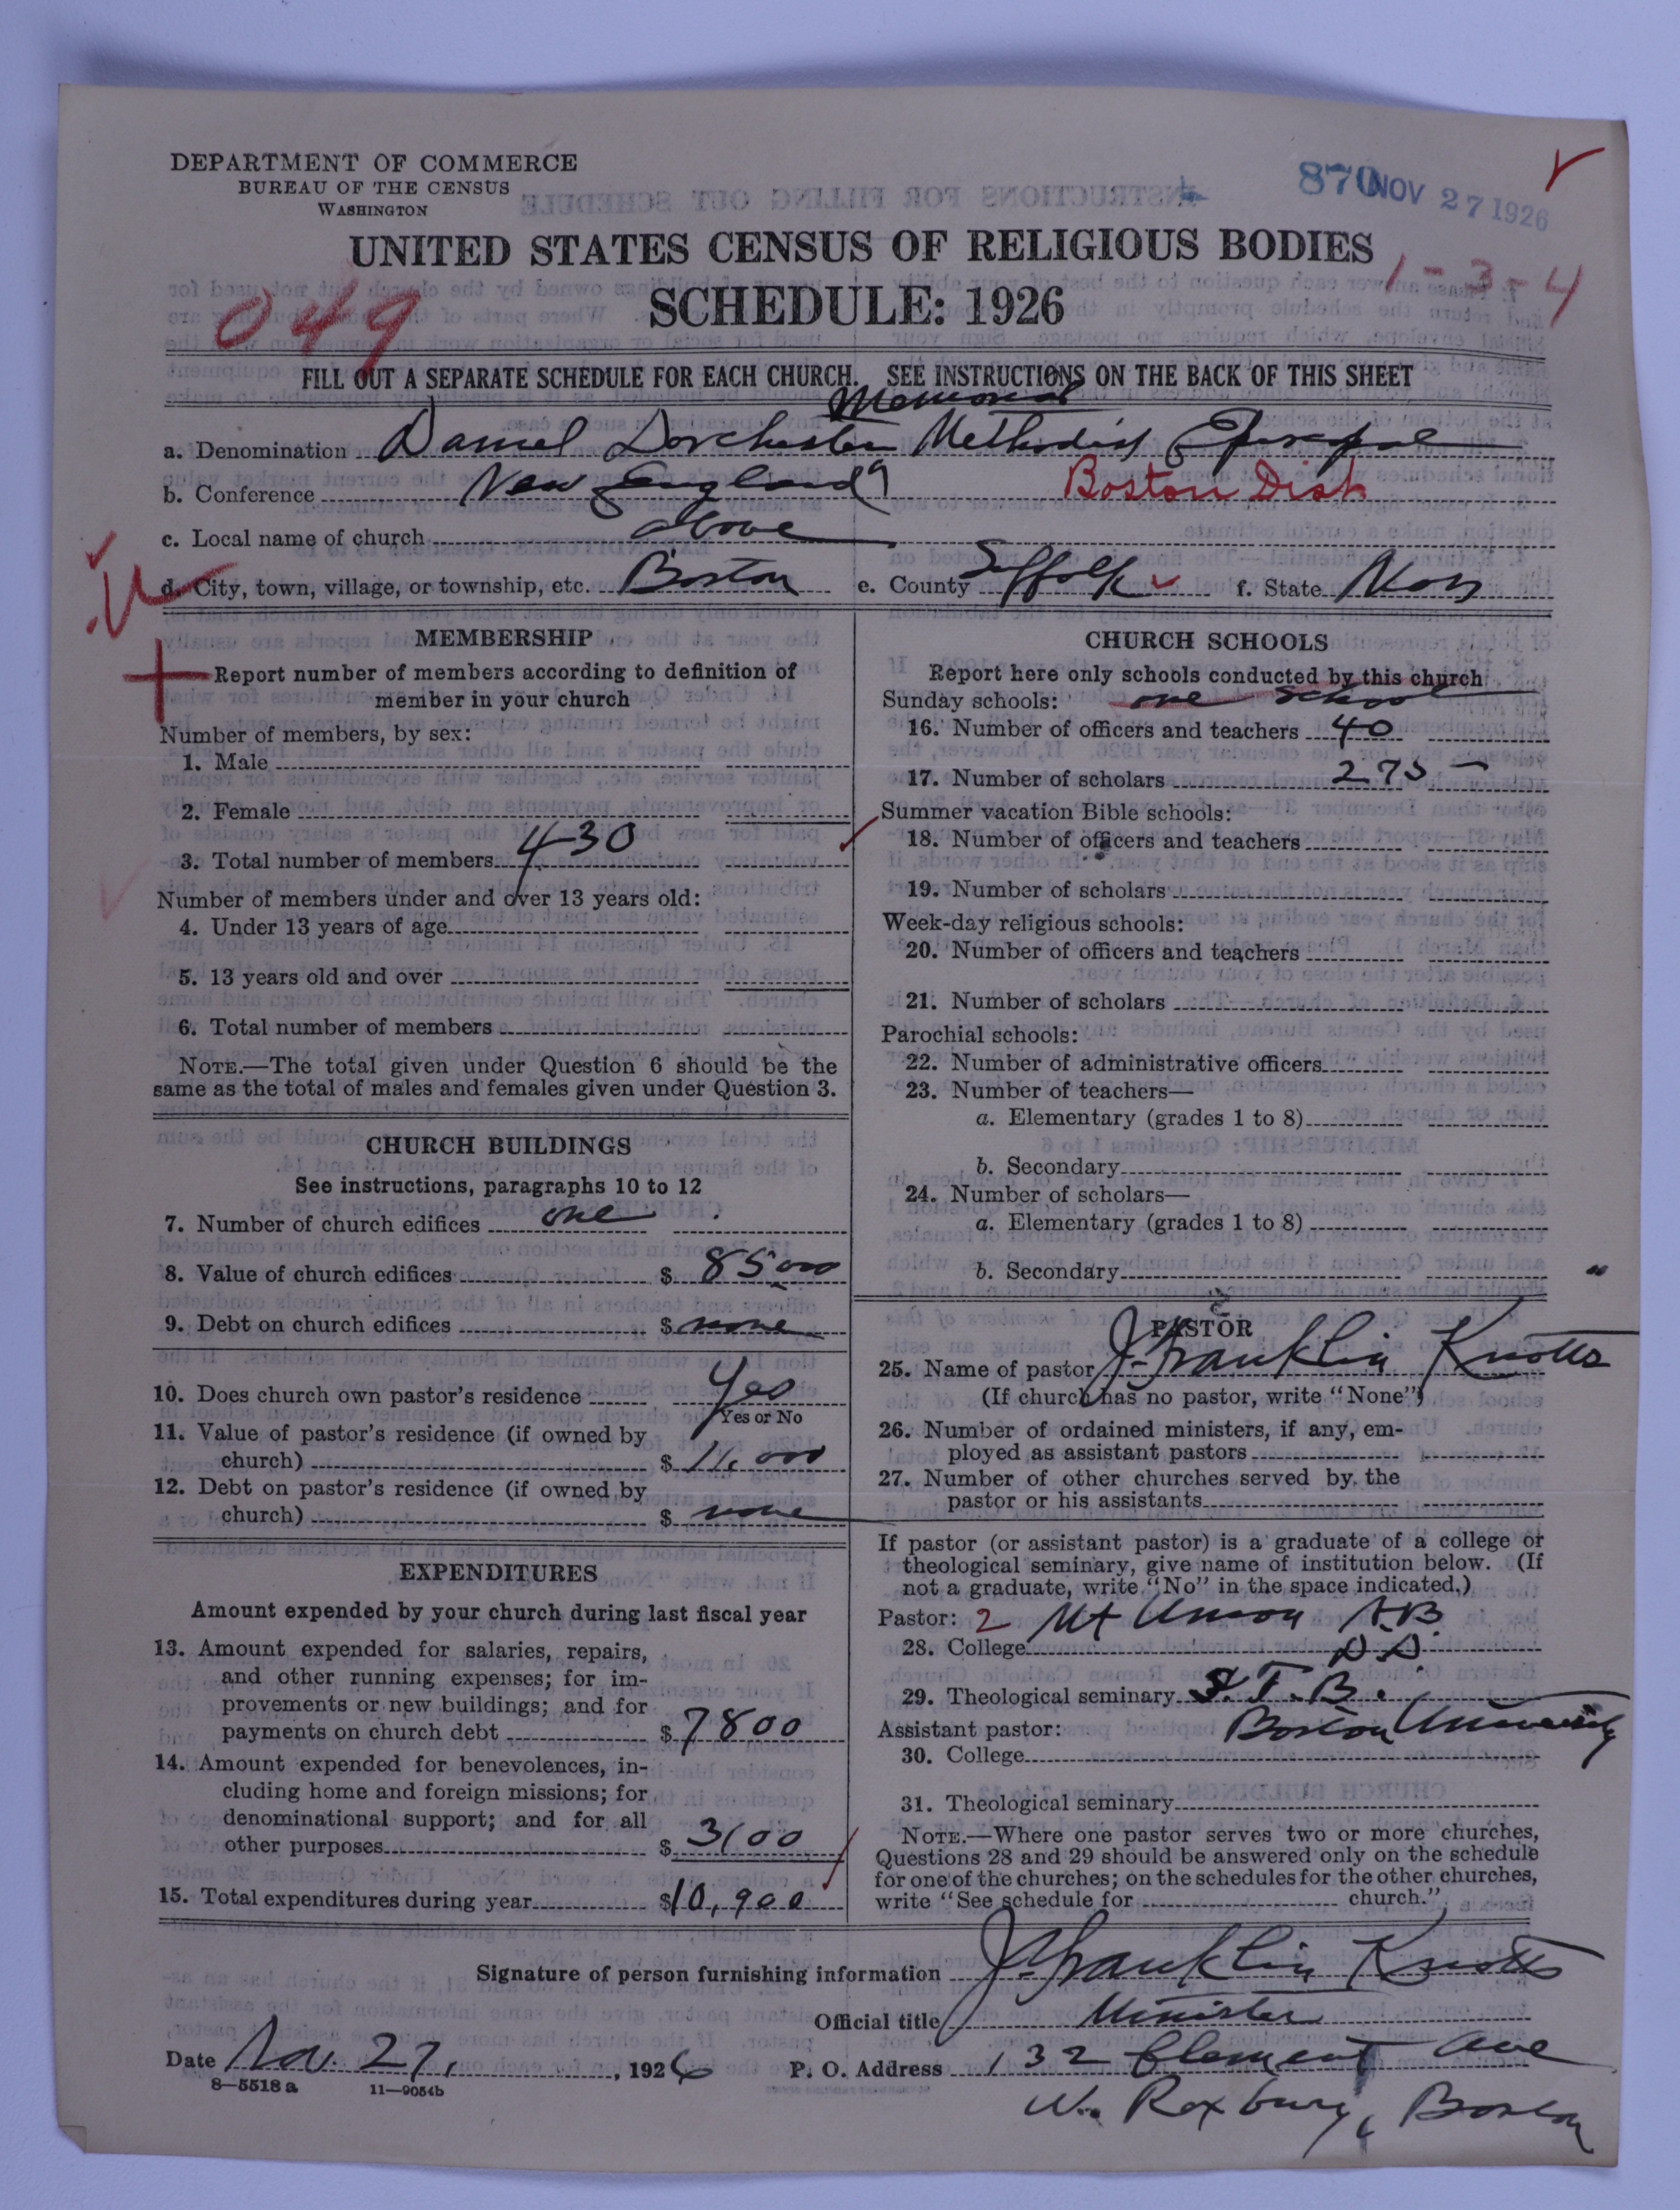 DEPARTMENT OF COMMERCE
BUREAU OF THE CENSUS
WASHINGTON
870 NOV 27 1926
UNITED STATES CENSUS OF RELIGIOUS BODIES
1-3-4
SCHEDULE: 1926
049
FILL OUT A SEPARATE SCHEDULE FOR EACH CHURCH. SEE INSTRUCTIONS ON THE BACK OF THIS SHEET
Memorial
a. Denomination Daniel Dorchester Methodist Episcopal
b. Conference New England 9 Boston Dist
c. Local name of church above
d. City, town, village, or township, etc. Boston e. County Suffolk f. State Mass
MEMBERSHIP
Report number of members according to definition of
member in your church
Number of members, by sex:
1. Male
2. Female
3. Total number of members 430
Number of members under and over 13 years old:
4. Under 13 years of age
5. 13 years old and over
6. Total number of members
NOTE.—The total given under Question 6 should be the
same as the total of males and females given under Question 3.
CHURCH BUILDINGS
See instructions, paragraphs 10 to 12
7. Number of church edifices one
8. Value of church edifices $ 85000
9. Debt on church edifices $ none
10. Does church own pastor's residence Yes
Yes or No
11. Value of pastor's residence (if owned by
church) $ 11,000
12. Debt on pastor's residence (if owned by
church) $ none
EXPENDITURES
Amount expended by your church during last fiscal year
13. Amount expended for salaries, repairs,
and other running expenses; for im-
provements or new buildings; and for
payments on church debt $ 7800
14. Amount expended for benevolences, in-
cluding home and foreign missions; for
denominational support; and for all
other purposes $ 3100
15. Total expenditures during year $10,900
CHURCH SCHOOLS
Report here only schools conducted by this church
Sunday schools: one school
16. Number of officers and teachers 40
17. Number of scholars 275
Summer vacation Bible schools:
18. Number of officers and teachers
19. Number of scholars
Week-day religious schools:
20. Number of officers and teachers
21. Number of scholars
Parochial schools:
22. Number of administrative officers
23. Number of teachers—
a. Elementary (grades 1 to 8)
b. Secondary
24. Number of scholars—
a. Elementary (grades 1 to 8)
b. Secondary
PASTOR
25. Name of pastor J. Franklin Knotts
(If church has no pastor, write "None")
26. Number of ordained ministers, if any, em-
ployed as assistant pastors
27. Number of other churches served by the
pastor or his assistants
If pastor (or assistant pastor) is a graduate of a college or
theological seminary, give name of institution below. (If
not a graduate, write "No" in the space indicated.)
Pastor: 2 Mt Union A B
28. College D.D.
29. Theological seminary S. T. B.
Assistant pastor: Boston University
30. College
31. Theological seminary
NOTE.—Where one pastor serves two or more churches,
Questions 28 and 29 should be answered only on the schedule
for one of the churches; on the schedules for the other churches,
write "See schedule for church."
Signature of person furnishing information J. Franklin Knotts
Official title Minister
Date Nov. 27, 1926 P. O. Address 132 Clement Ave
8—5518a 11—9054b
W. Roxbury, Boston